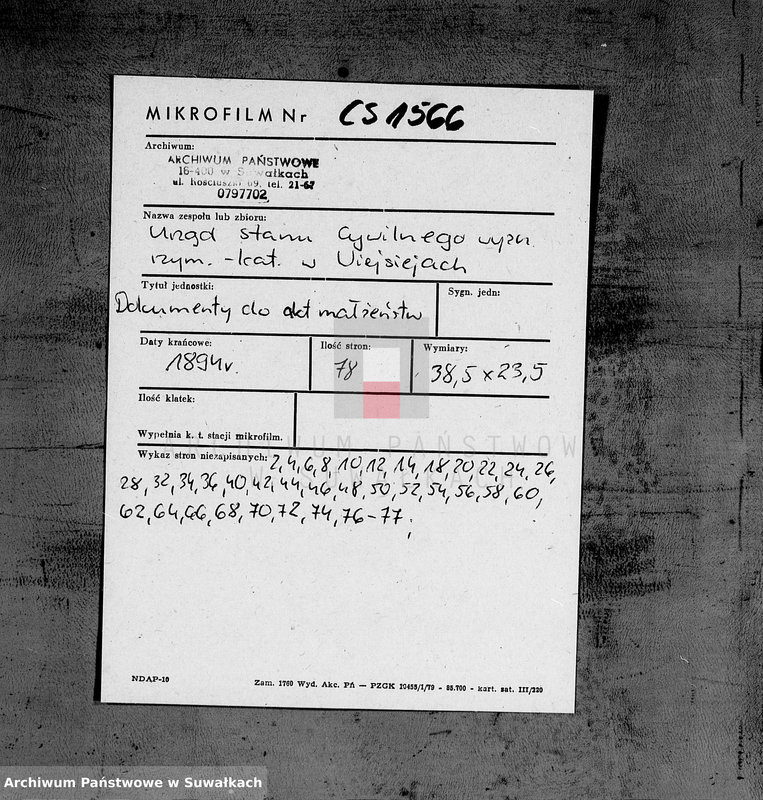 MIKROFILM Nr CS 1566
Archiwum:
ARCHIWUM PAŃSTWOWE
16-400 w Suwałkach
ul. Kościuszki 69, tel. 21-67
0797702
Nazwa zespołu lub zbioru:
Urząd stanu Cywilnego wyzn.
rzym. -kat. w Wiejsiejach
Tytuł jednostki:
Dokumenty do akt małżeństw
Sygn. jedn:
Daty krańcowe:
1894r.
Ilość stron:
78
Wymiary:
38,5 x 23,5
Ilość klatek:
Wypełnia k. t. stacji mikrofilm.
Wykaz stron niezapisanych: 2,4,6,8,10,12,14,18,20,22,24,26,
28,32,34,36,40,42,44,46,48,50,52,54,56,58,60,
62,64,66,68,70,72,74,76-77;
ARCHIWUM PAŃSTWOW
W SUWAŁKACH
NDAP-10
Zam. 1760 Wyd. Akc. Pń — PZGK 10455/1/79 - 85.700 - kart. sat. III/220
Archiwum Państwowe w Suwałkach